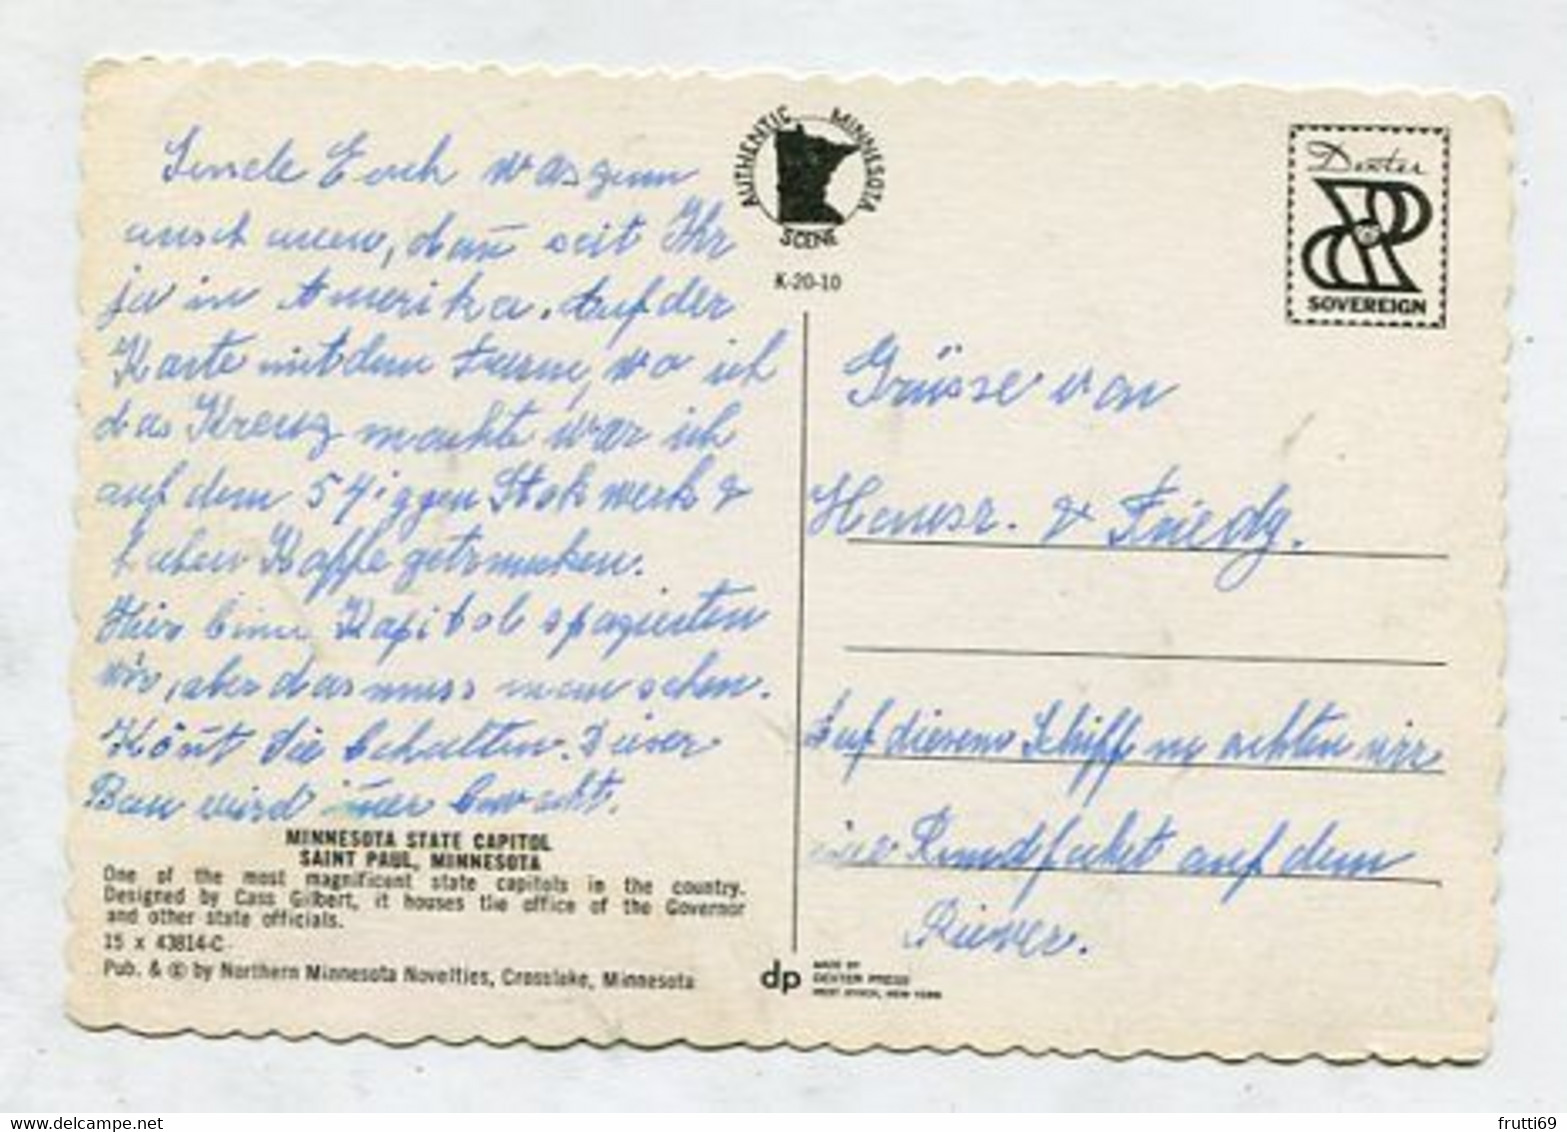 Sende Euch was zum
anschauen, dan̄ seit Ihr
ja in Amerika. Auf der
Karte mit dem Turm, wo ich
das Kreuz machte war ich
auf dem 54iggen Stokwerk &
haben Kaffe getrunken.
Hier beim Kapitol spazierten
wir, aber das muss man sehen.
Kön̄t Sie behalten. Dieser
Bau wird im̄er bewacht.
MINNESOTA STATE CAPITOL
SAINT PAUL, MINNESOTA
One of the most magnificent state capitols in the country.
Designed by Cass Gilbert, it houses the office of the Governor
and other state officials.
15 x 43814-C
Pub. & © by Northern Minnesota Novelties, Crosslake, Minnesota
AUTHENTIC MINNESOTA
SCENE
K-20-10
dp
MADE BY
DEXTER PRESS
WEST NYACK, NEW YORK
Dexter
SOVEREIGN
Grüsse von
& Friedg.
Auf diesem Schiff machten wir
eine Rundfahrt auf dem
River.
frutti69
delcampe.net